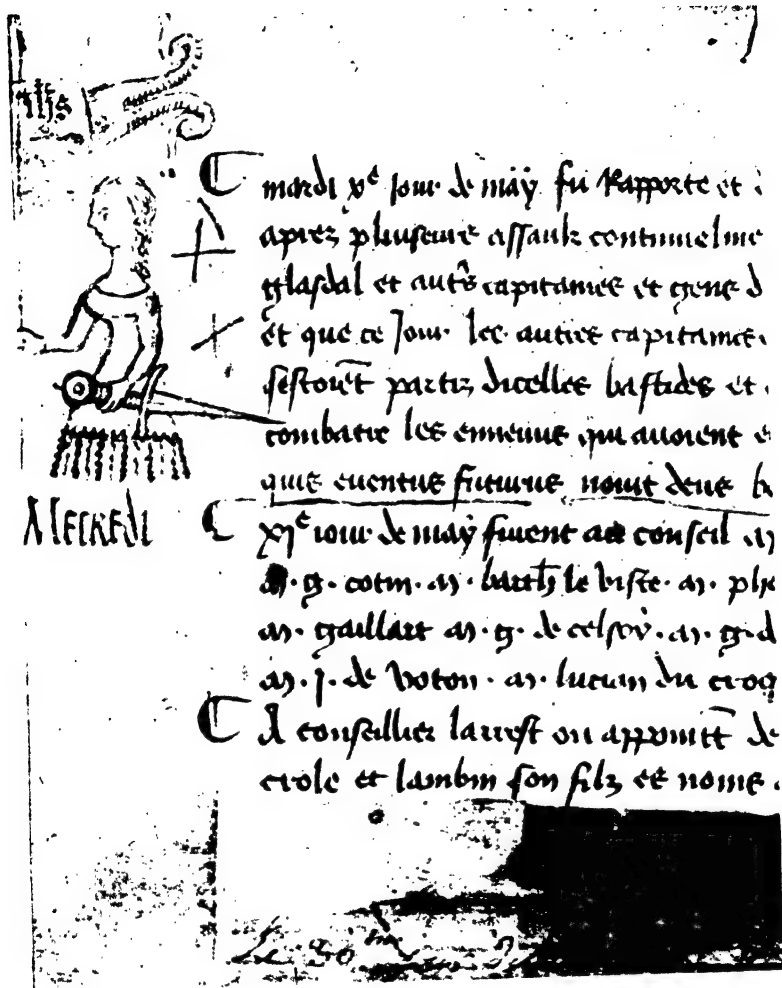 Jhs
mardi xe jour de may fu Rapporte et
apres pluseurs assaulz continuelme
glasdal et autrs capitaines et gens d
et que ce Jour les autres capitaines
sestoiet partiz dicelles bastides et
combatre les ennemis qui avoient e
quis eventus futurus novit deus b
Mercredi
xje jour de may furent au conseil m
m. g. cotin. m. barth le viste. m. phe
m. gaillart m. g. de celsoy. m. g. d
m. J. de voton. m. lucian du croq
A conseillier larrest ou appoinctt de
crole et lambin son filz es noms